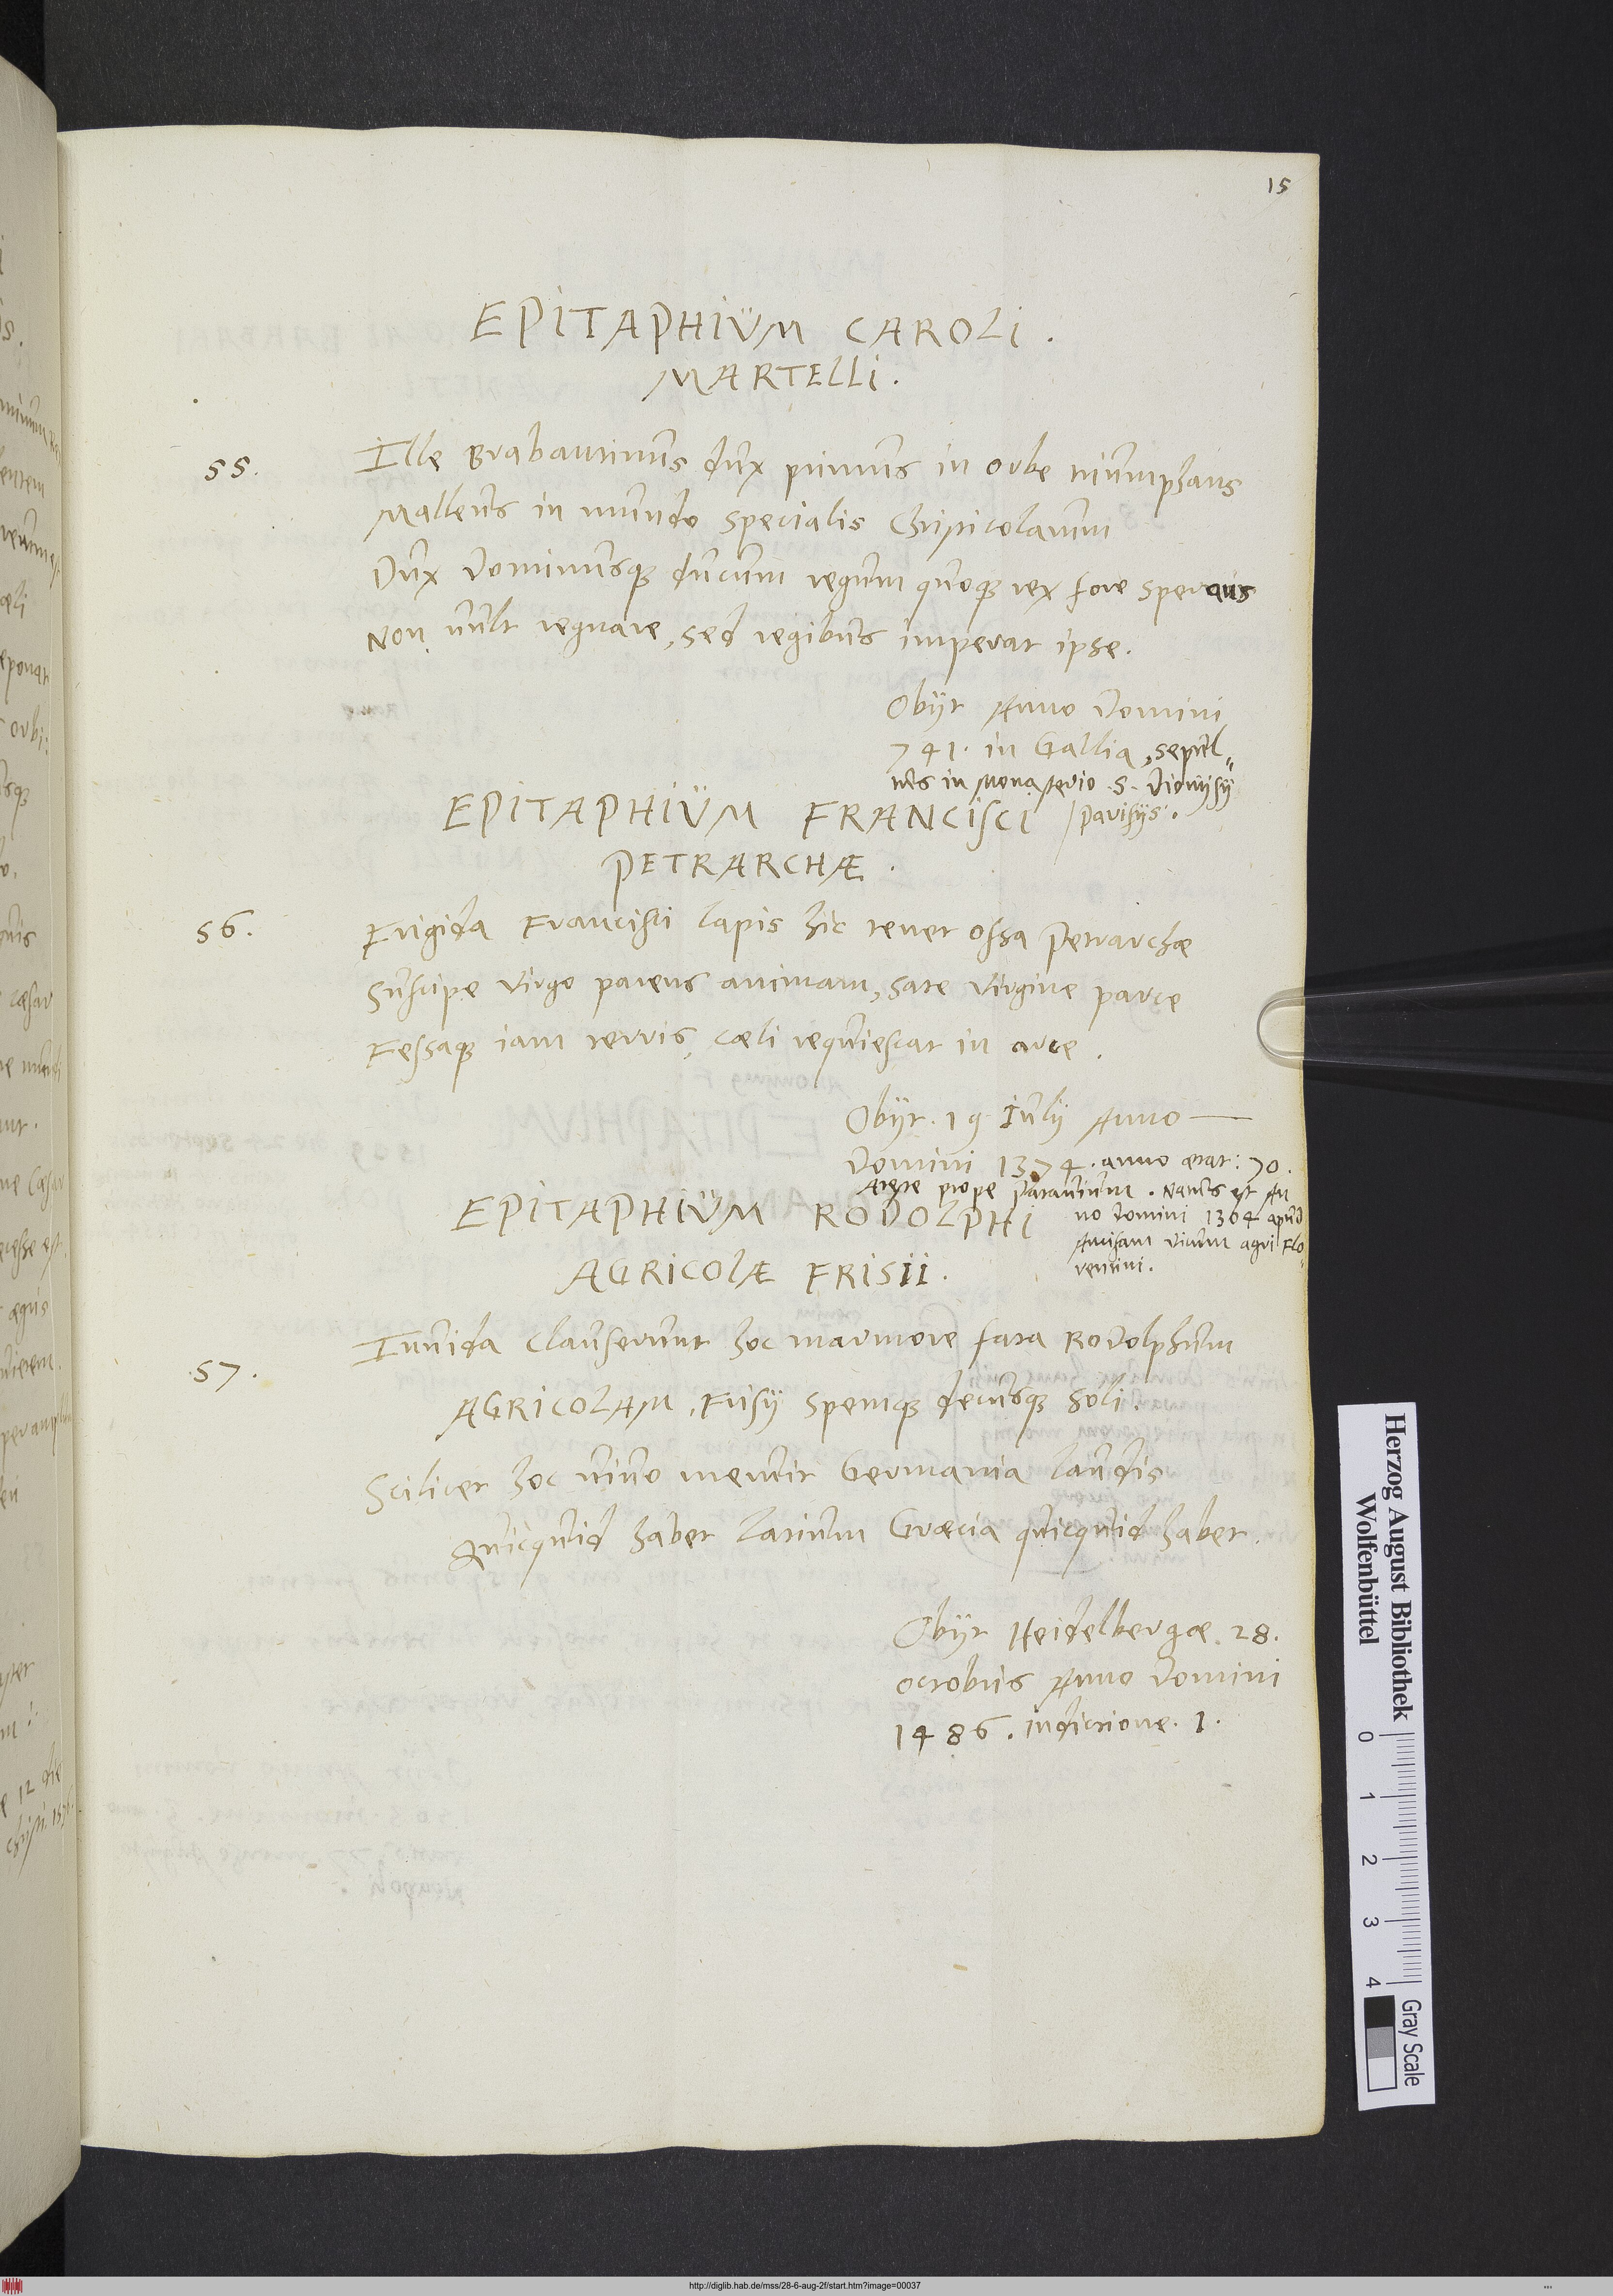 15
EPITAPHIUM CAROLI.
MARTELLI.
55.
Ille Brabantinus dux primus in orbe triumphans
Malleus in mundo specialis Christicolarum
Dux Dominusq́ ducum regum quoq́ rex fore sperans
Non vult regnare, sed regibus imperat ipse.
Obijt Anno Domini
741. in Gallia, sepul„
tus in Monasterio S. Dionijsij
Parisijs.
EPITAPHIUM FRANCISCI
PETRARCHÆ.
56.
Frigida Francisci lapis hic tenet ossa Petrarchæ
Suscipe virgo parens animam, sate virgine parce
Fessaq́ iam terris, cæli requiescat in arce.
Obijt. 19 Iulij Anno
Domini 1374. anno ætat: 70.
prope Patavium. Natus est An
no Domini 1304 apud
Ancisam vicum agri Flo
rentini.
EPITAPHIUM RODOLPHI
AGRICOLÆ FRISII.
57.
Invida clauserunt hoc marmore fata Rodolphum
AGRICOLAM, Frisij spemq́ decusq́ soli.
Scilicet hoc vivo meruit Germania laudis
Quicquid habet Latium Græcia quicquid habet.
Obijt Heidelbergæ 28.
octobris Anno Domini
1486. indictione. 1.
Herzog August Bibliothek
Wolfenbüttel
0 1 2 3 4
Gray Scale
http://diglib.hab.de/mss/28-6-aug-2f/start.htm?image=00037